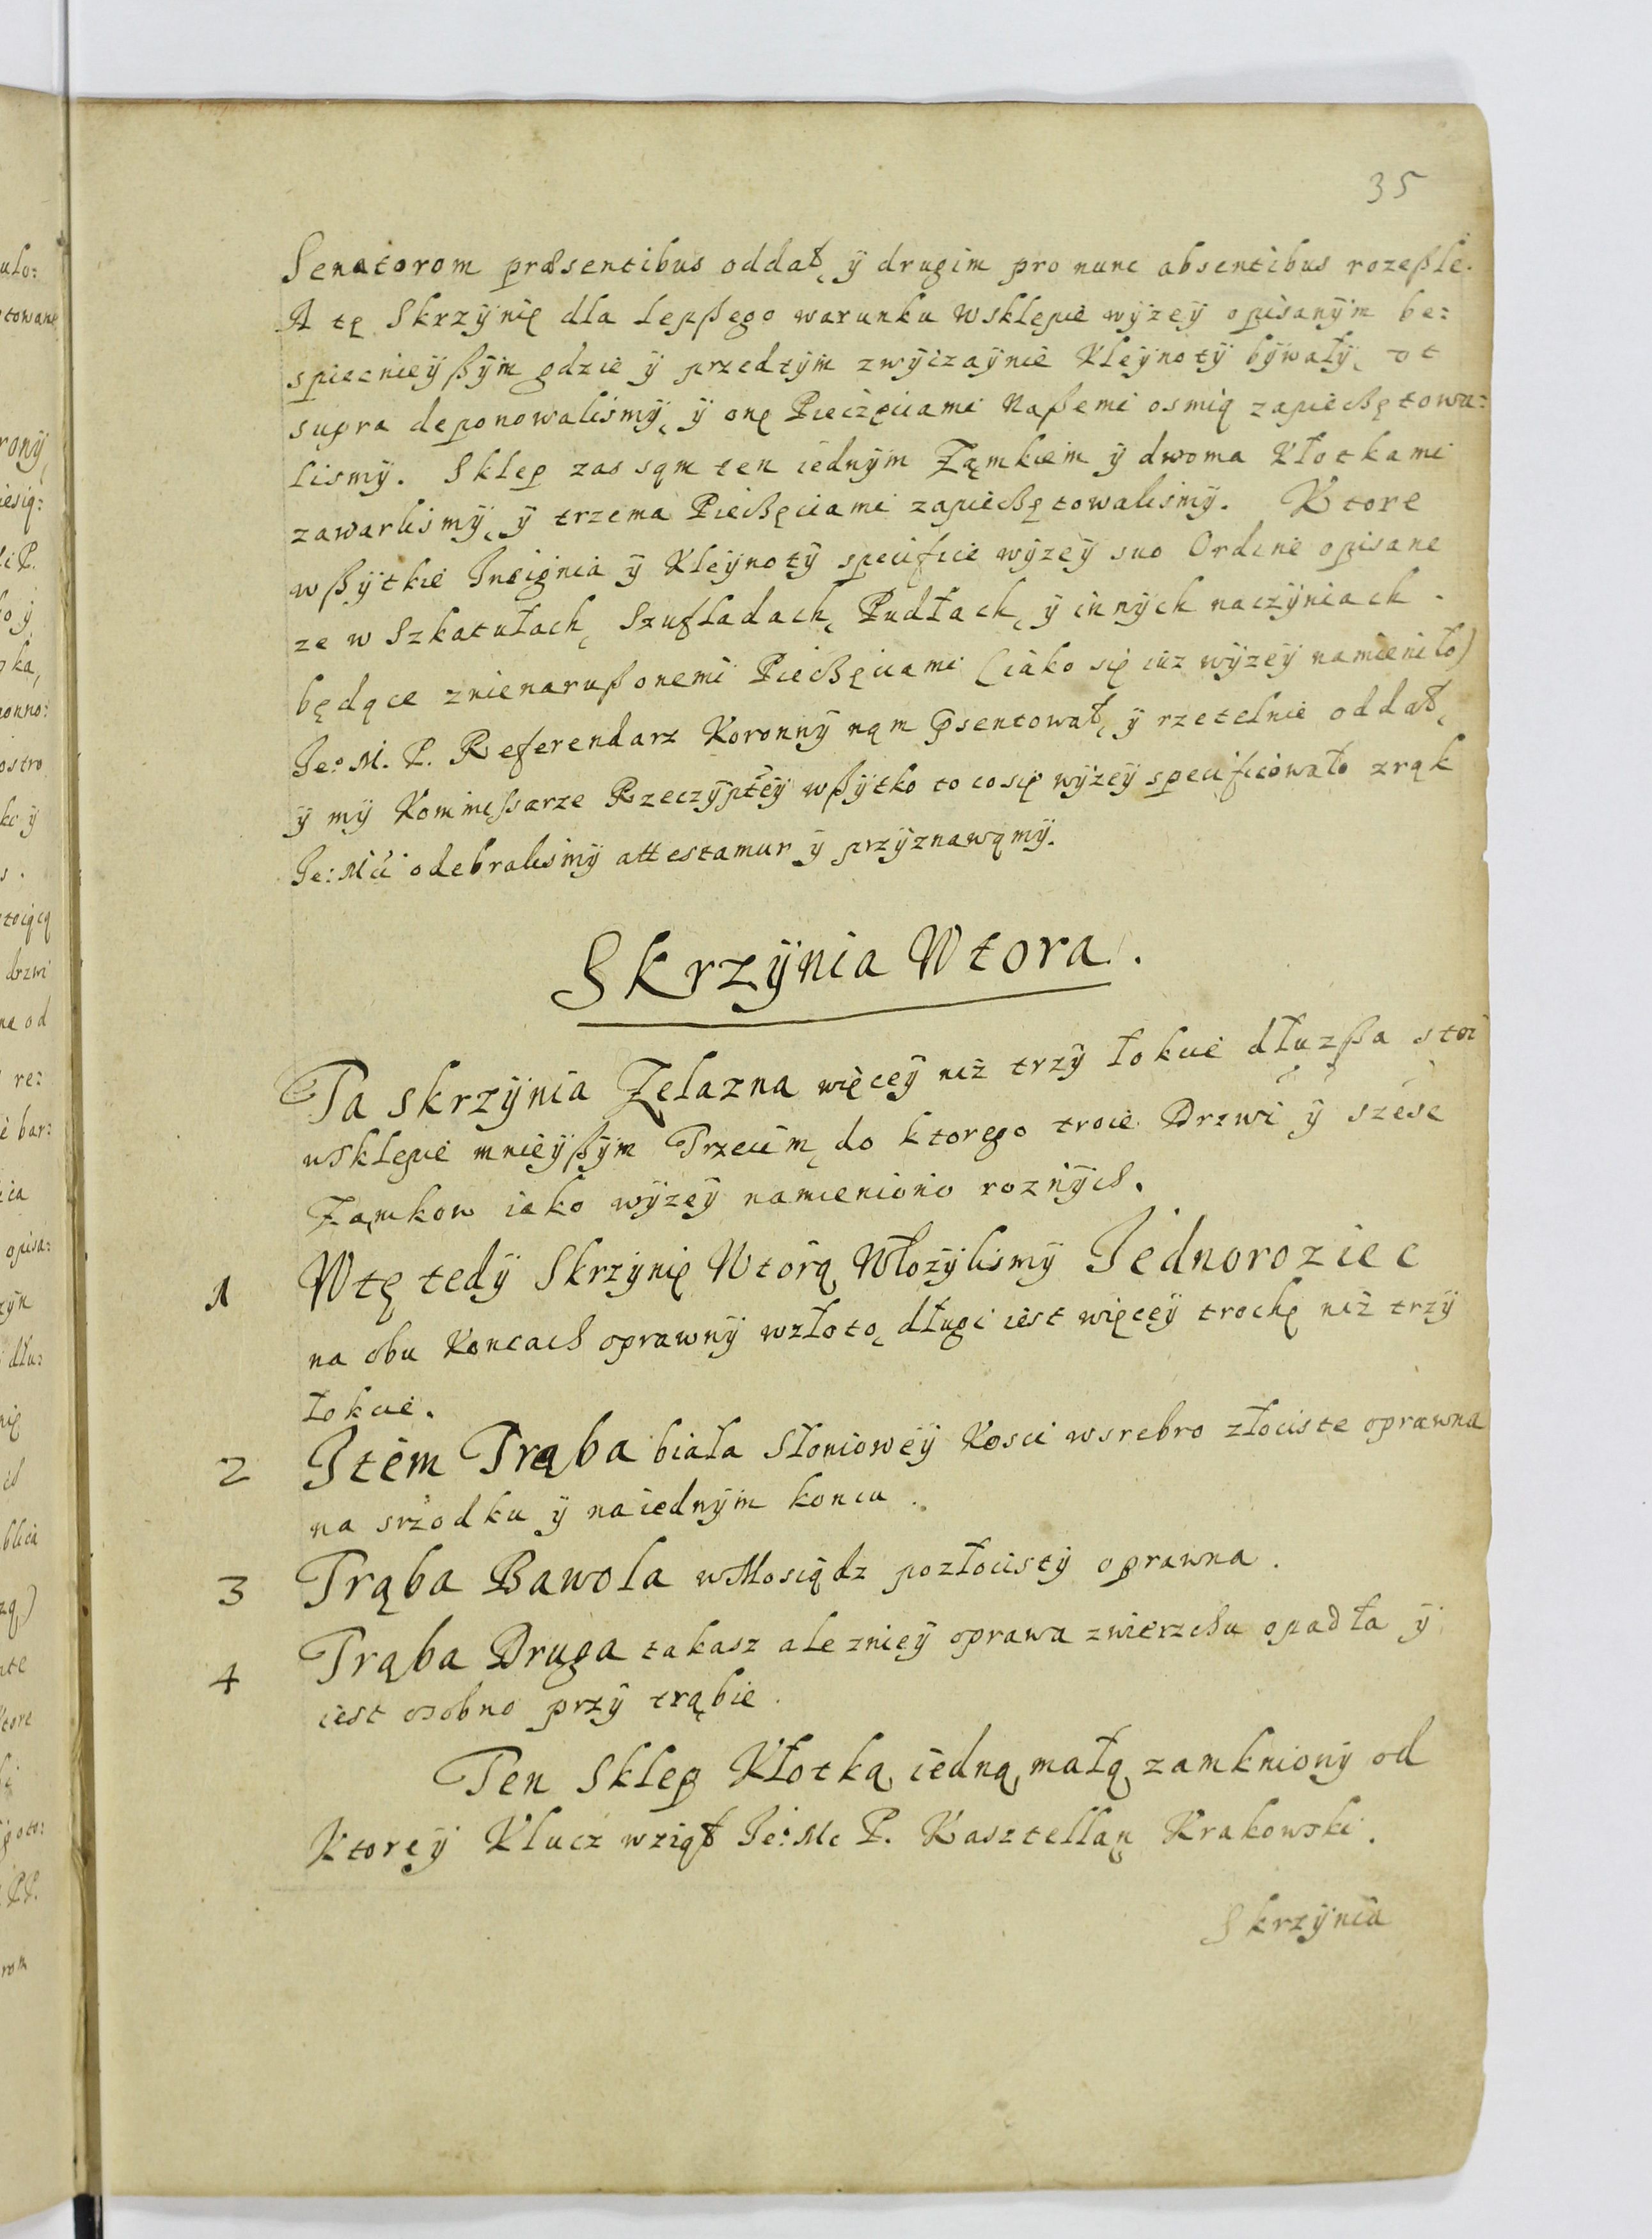 35
Senatorom præsentibus oddał, ÿ drugim pro nunc absentibus rozeßle.
A tę Skrzÿnię dla lepßego warunku wsklepie wÿzeÿ opisanÿm be:
spiecznieÿßÿm gdzie ÿ przedtÿm zwÿczaÿnie Kleÿnotÿ bÿwałÿ, ot
supra deponowalismÿ, ÿ onę Pieczęciami Naßemi osmią zapieczętowa:
lismÿ. Sklep zas sąm ten iednÿm Ząmkiem ÿ dwoma Kłotkami
zawarlismÿ, ÿ trzema Pieczęciami zapieczętowalismÿ. Ktore
wßÿtkie Insignia ÿ Kleÿnotÿ specifice wÿzeÿ suo Ordine opisane
ze w Szkatułach, Szufladach, Pudłach, ÿ innÿch naczÿniach
będące znienarußonemi Pieczęciami (iako się iuz wÿzeÿ namieniło)
Ie:o M. P. Referendarz Koronnÿ nąm psentował, ÿ rzetelnie oddał,
ÿ mÿ Kommissarze Rzeczÿpteÿ wßÿtko to cosię wÿzeÿ specificowało zrąk
Ie: Mci odebralismÿ attestamur ÿ przÿznawąmÿ.
Skrzÿnia Wtora.
Ta skrzÿnia Zelazna więceÿ niż trzÿ łokcie dłuzßa stoi
wsklepie mnieÿßÿm Trzecim, do ktorego troie Drzwi ÿ szesc
Ząmkow iako wÿzeÿ namieniono roznÿch.
1 Wtę tedÿ Skrzÿnię Wtorą Włozÿlismÿ Iednoroziec
na obu Koncach oprawnÿ wzłoto, długi iest więceÿ trochę niż trzÿ
łokcie.
2 Item Trąba biała Słonioweÿ Kosci wsrebro złociste oprawna
na srzodku ÿ naiednÿm koncu.
3 Trąba Bawola wMosiądz pozłocistÿ oprawna.
4 Trąba Druga takasz ale znieÿ oprawa zwierzchu opadła ÿ
iest osobno przÿ trąbie.
Ten Sklep Kłotką iedną małą zamknionÿ od
Ktoreÿ Klucz wziął Ie:o Mc P. Kasztellan Krakowski.
Skrzÿnia